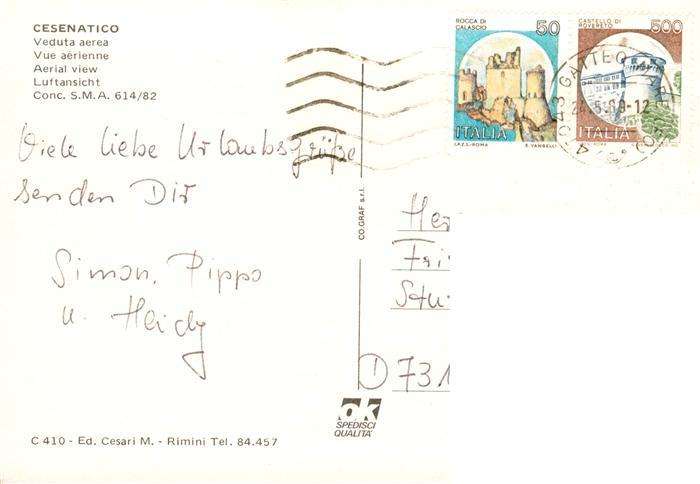 CESENATICO
Veduta aerea
Vue aérienne
Aerial view
Luftansicht
Conc. S.M.A. 614/82
ROCCA DI
CALASCIO
50
ITALIA
I.P.Z.S.-ROMA
E. VANGELLI
CASTELLO DI
ROVERETO
500
ITALIA
GATTEO
Viele liebe Urlaubsgrüße
senden Dir
Simon, Pippo
u. Heidy
CO.GRAF s.r.l.
Her
Fri
Stu
D 731
ok
SPEDISCI
QUALITA'
C 410 - Ed. Cesari M. - Rimini Tel. 84.457